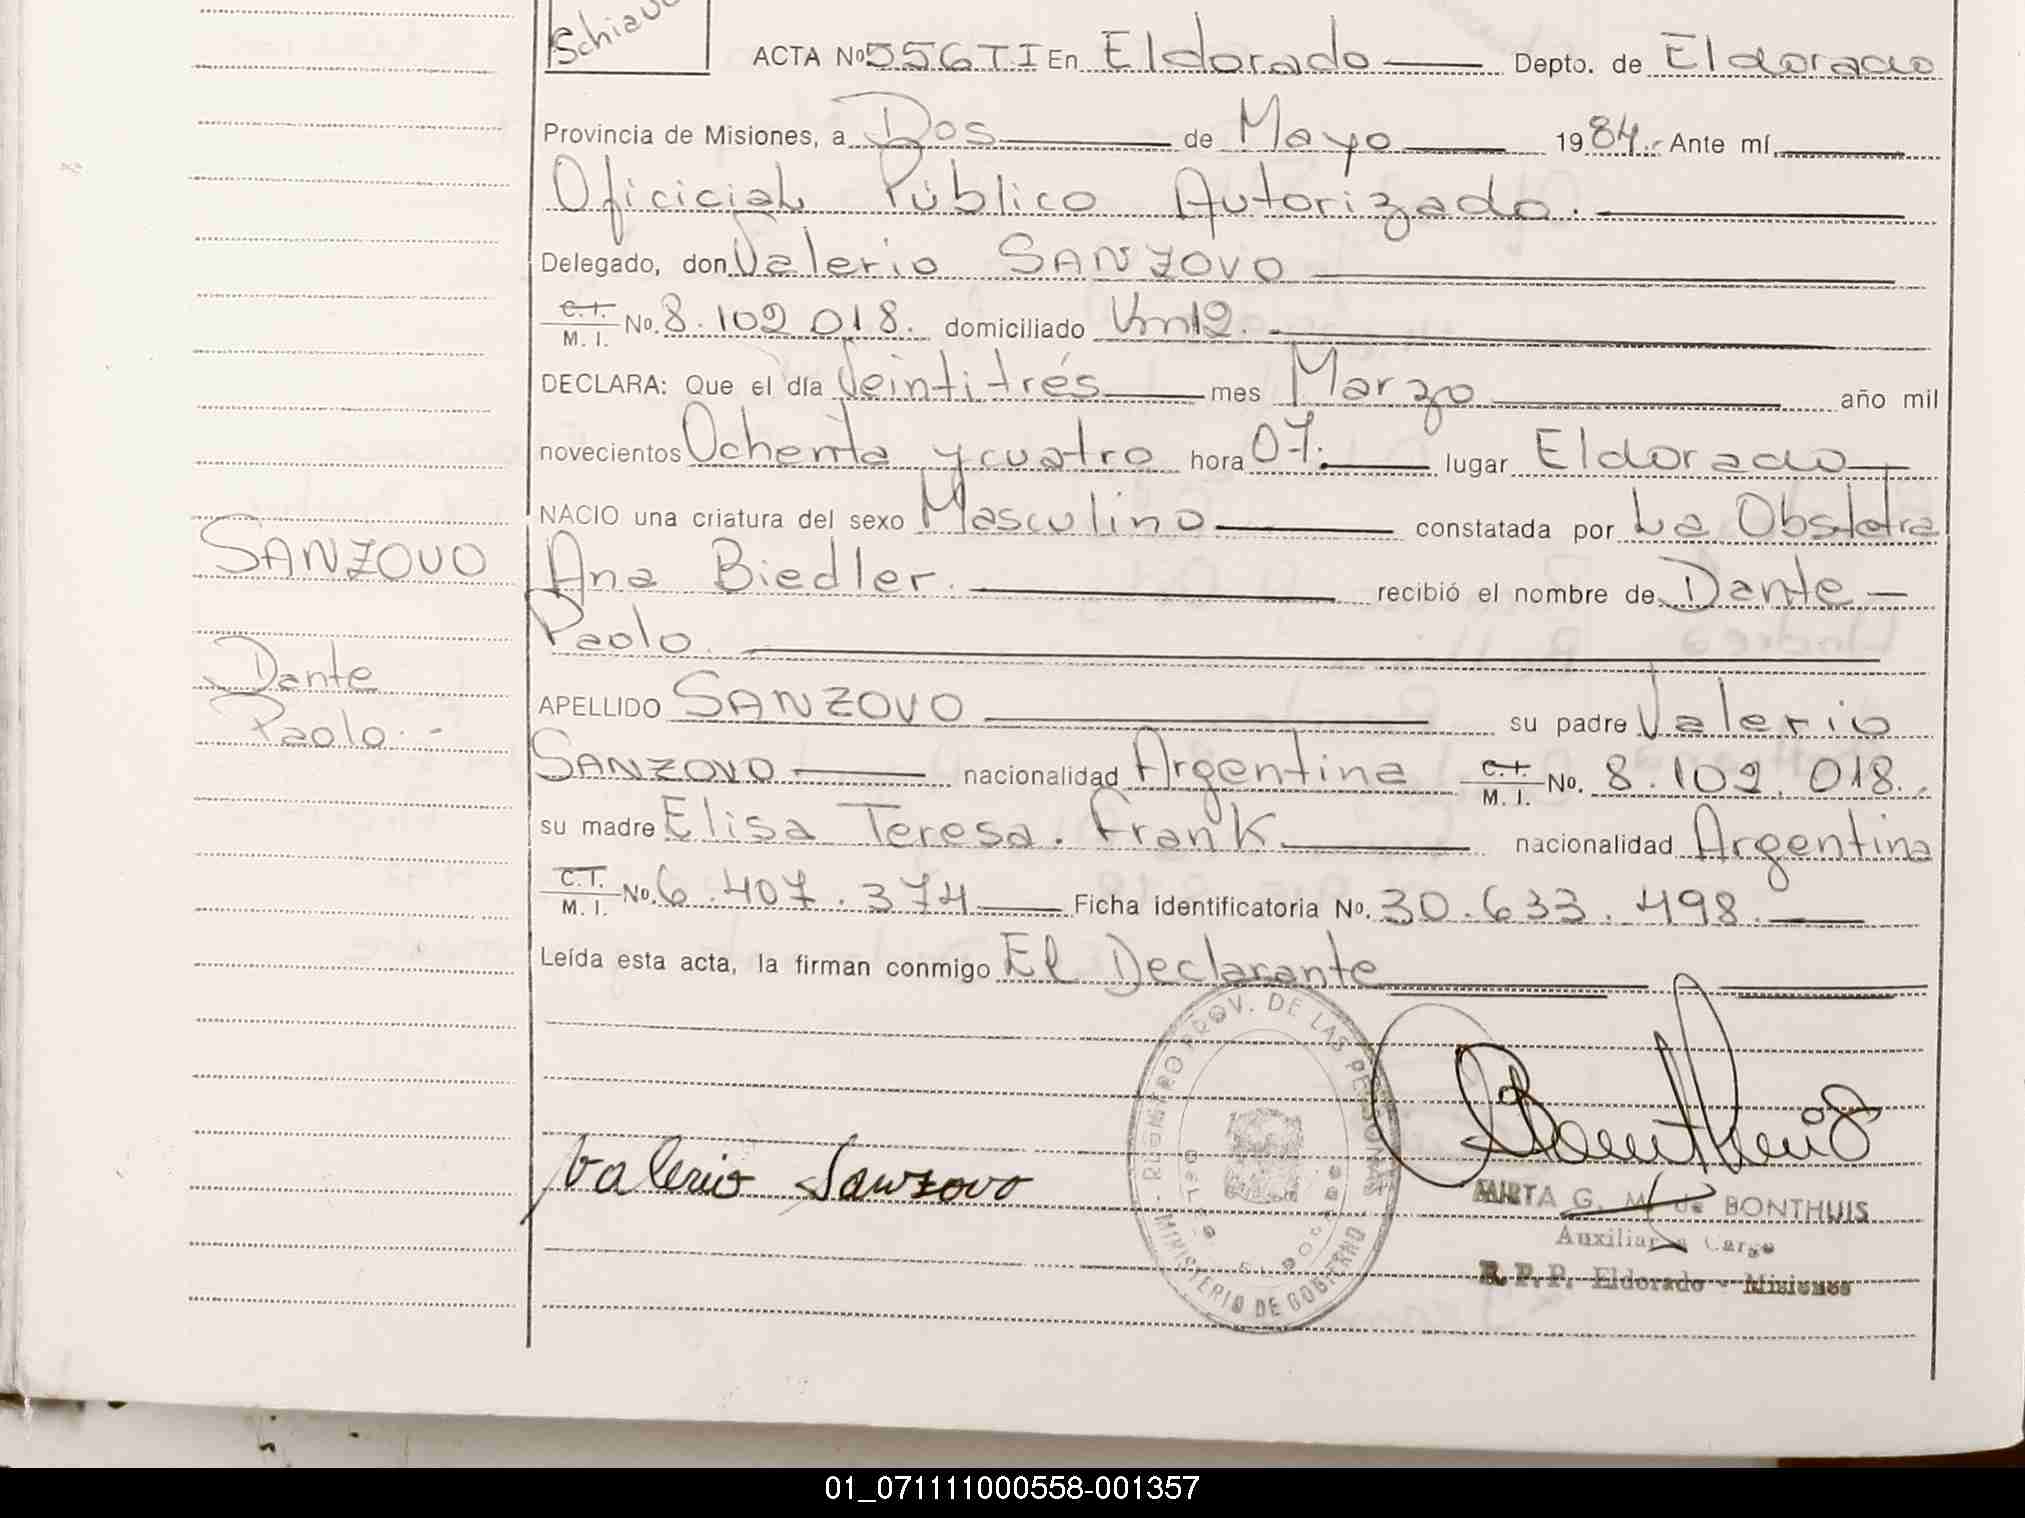 Schiavo
ACTA No 556 TI En Eldorado Depto. de Eldorado
Provincia de Misiones, a Dos de Mayo 1984.- Ante mí,
Oficicial Público Autorizado.
Delegado, don Valerio SANZOVO
C.I. M. I. No. 8.102 018. domiciliado Km12.
DECLARA: Que el día Veintitrés mes Marzo año mil
novecientos Ochenta y cuatro hora 07. lugar Eldorado
NACIO una criatura del sexo Masculino constatada por La Obstetra
SANZOVO
Ana Biedler. recibió el nombre de Dante
Paolo.
Dante
Paolo.-
APELLIDO SANZOVO su padre Valerio
SANZOVO nacionalidad Argentina C.I. M. I. No. 8.102.018.
su madre Elisa Teresa. Frank nacionalidad Argentina
C.I. M. I. No. 6.407.374 Ficha identificatoria No. 30.633.498.
Leída esta acta, la firman conmigo El Declarante
REGISTRO PROV. DE LAS PERSONAS
- MINISTERIO DE GOBIERNO -
Valerio Sanzovo
Bonthuis
MIRTA G. M. de BONTHUIS
Auxiliar a Cargo
R. P. P. Eldorado - Misiones
01_071111000558-001357